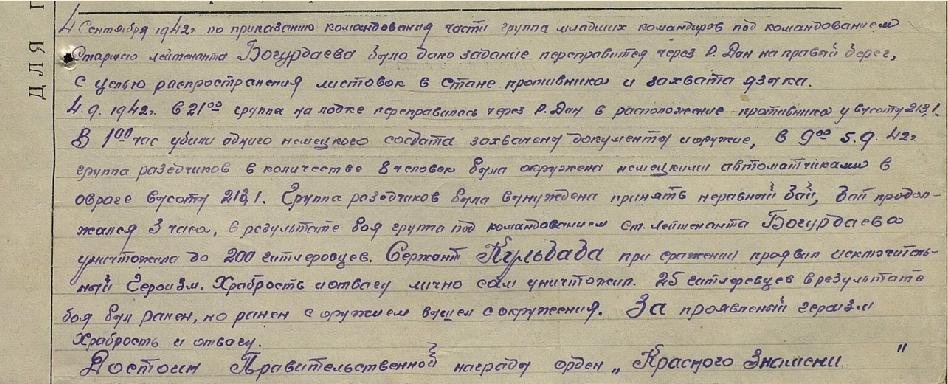 ДЛЯ
4 Сентября 1942г по приказанию командования части группа младших командиров под командованием
Старшего лейтенанта Богурдаева было дано задание переправится через р. Дон на правый берег,
с целью распространения листовок в стане противника и захвата языка.
4.9.1942г. в 21⁰⁰ группа на лодке переправилась через р. Дон в расположение противника у высоты 213,1.
В 1⁰⁰ час убили одного немецкого солдата захвачены документы и оружие, в 9⁰⁰ 5.9.42г
группа разведчиков в количестве 8 человек была окружена немецкими автоматчиками в
овраге высоты 213,1. Группа разведчиков была вынуждена принять неравный бой, бой продол-
жался 3 часа, в результате боя группа под командованием ст. лейтенанта Богурдаева
уничтожила до 200 гитлеровцев. Сержант Кульбада при сражении проявил исключитель-
ный Героизм. Храбрость и отвагу лично сам уничтожил 25 гитлеровцев в результате
боя был ранен, но ранен с оружием вышел с окружения. За проявленный героизм
Храбрость и отвагу.
Достоин Правительственной награды орден „Красного Знамени"